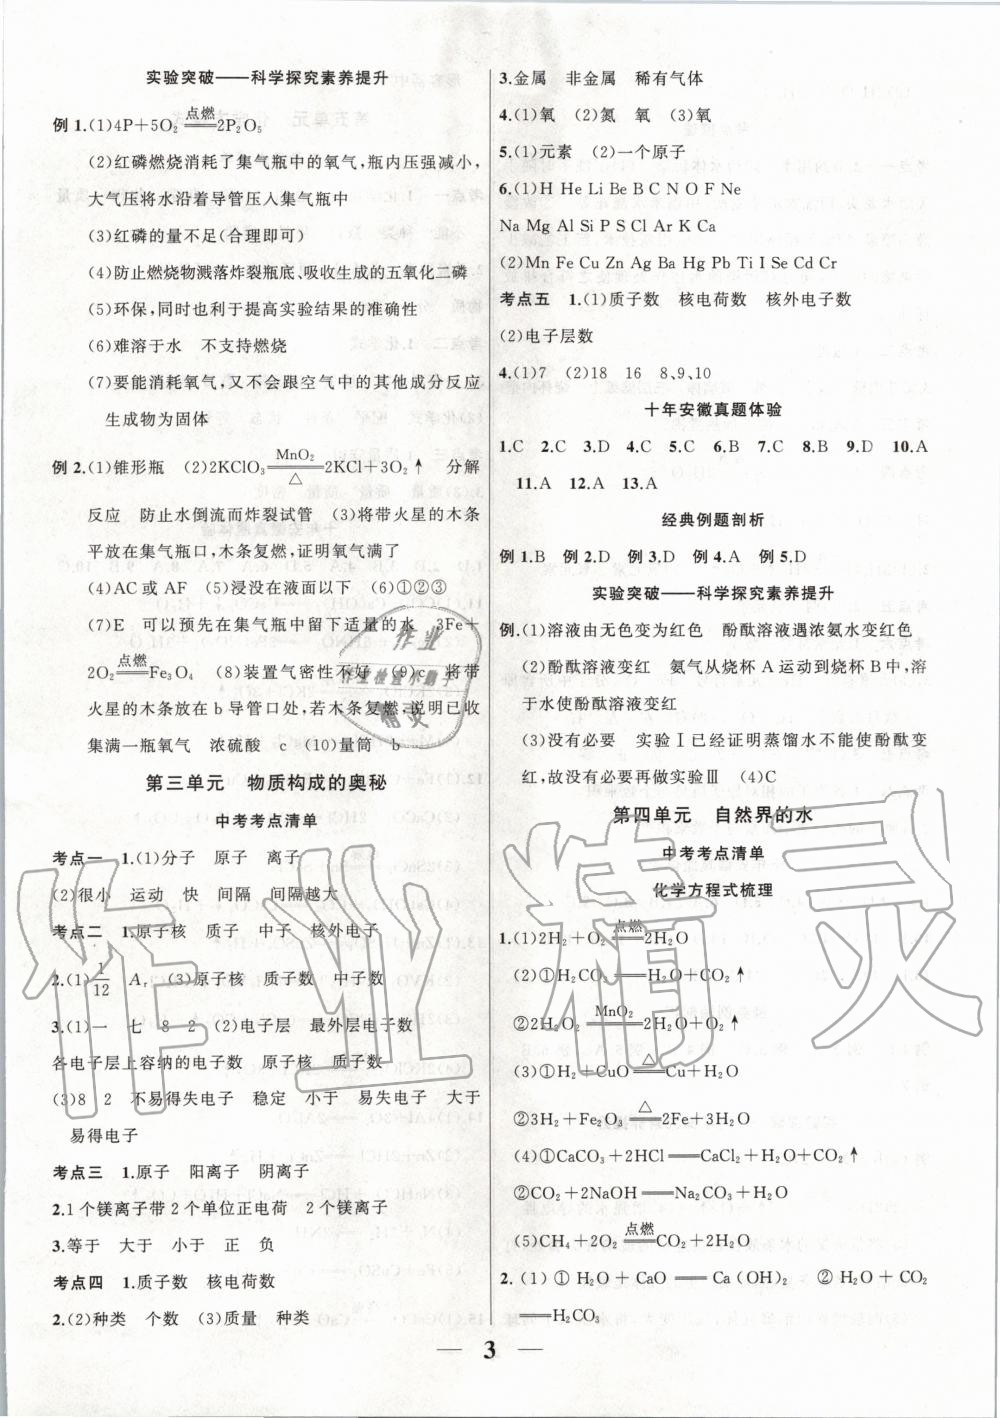 实验突破——科学探究素养提升
例 1.(1)4P+5O₂ 点燃══ 2P₂O₅
(2)红磷燃烧消耗了集气瓶中的氧气,瓶内压强减小,
大气压将水沿着导管压入集气瓶中
(3)红磷的量不足(合理即可)
(4)防止燃烧物溅落炸裂瓶底、吸收生成的五氧化二磷
(5)环保,同时也利于提高实验结果的准确性
(6)难溶于水 不支持燃烧
(7)要能消耗氧气,又不会跟空气中的其他成分反应
生成物为固体
例 2.(1)锥形瓶 (2)2KClO₃ MnO₂══△ 2KCl+3O₂↑ 分解
反应 防止水倒流而炸裂试管 (3)将带火星的木条
平放在集气瓶口,木条复燃,证明氧气满了
(4)AC或 AF (5)浸没在液面以下 (6)①②③
(7)E 可以预先在集气瓶中留下适量的水 3Fe+
2O₂ 点燃══ Fe₃O₄ (8)装置气密性不好 (9)c 将带
火星的木条放在 b 导管口处,若木条复燃,说明已收
集满一瓶氧气 浓硫酸 c (10)量筒 b
第三单元 物质构成的奥秘
中考考点清单
考点一 1.(1)分子 原子 离子
(2)很小 运动 快 间隔 间隔越大
考点二 1.原子核 质子 中子 核外电子
2.(1)1/12 Aᵣ (3)原子核 质子数 中子数
3.(1)一 七 8 2 (2)电子层 最外层电子数
各电子层上容纳的电子数 原子核 质子数
(3)8 2 不易得失电子 稳定 小于 易失电子 大于
易得电子
考点三 1.原子 阳离子 阴离子
2.1 个镁离子带 2 个单位正电荷 2 个镁离子
3.等于 大于 小于 正 负
考点四 1.质子数 核电荷数
2.(2)种类 个数 (3)质量 种类
3.金属 非金属 稀有气体
4.(1)氧 (2)氮 氧 (3)氧
5.(1)元素 (2)一个原子
6.(1)H He Li Be B C N O F Ne
Na Mg Al Si P S Cl Ar K Ca
(2)Mn Fe Cu Zn Ag Ba Hg Pb Ti I Se Cd Cr
考点五 1.(1)质子数 核电荷数 核外电子数
(2)电子层数
4.(1)7 (2)18 16 8、9、10
十年安徽真题体验
1.C 2.C 3.D 4.C 5.C 6.B 7.C 8.B 9.D 10.A
11.A 12.A 13.A
经典例题剖析
例 1.B 例 2.D 例 3.D 例 4.A 例 5.D
实验突破——科学探究素养提升
例.(1)溶液由无色变为红色 酚酞溶液遇浓氨水变红色
(2)酚酞溶液变红 氨气从烧杯 A 运动到烧杯 B 中,溶
于水使酚酞溶液变红
(3)没有必要 实验Ⅰ已经证明蒸馏水不能使酚酞变
红,故没有必要再做实验Ⅲ (4)C
第四单元 自然界的水
中考考点清单
化学方程式梳理
1.(1)2H₂+O₂ 点燃══ 2H₂O
(2)①H₂CO₃══H₂O+CO₂↑
②2H₂O₂ MnO₂══ 2H₂O+O₂↑
(3)①H₂+CuO △══ Cu+H₂O
②3H₂+Fe₂O₃ △══ 2Fe+3H₂O
(4)①CaCO₃+2HCl══CaCl₂+H₂O+CO₂↑
②CO₂+2NaOH══Na₂CO₃+H₂O
(5)CH₄+2O₂ 点燃══ CO₂+2H₂O
2.(1)①H₂O+CaO══Ca(OH)₂ ②H₂O+CO₂
══H₂CO₃
3
作业精灵
作业
作业检查小助手
精灵